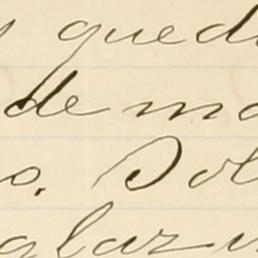 y qued
de ma
o. Sol
glaz